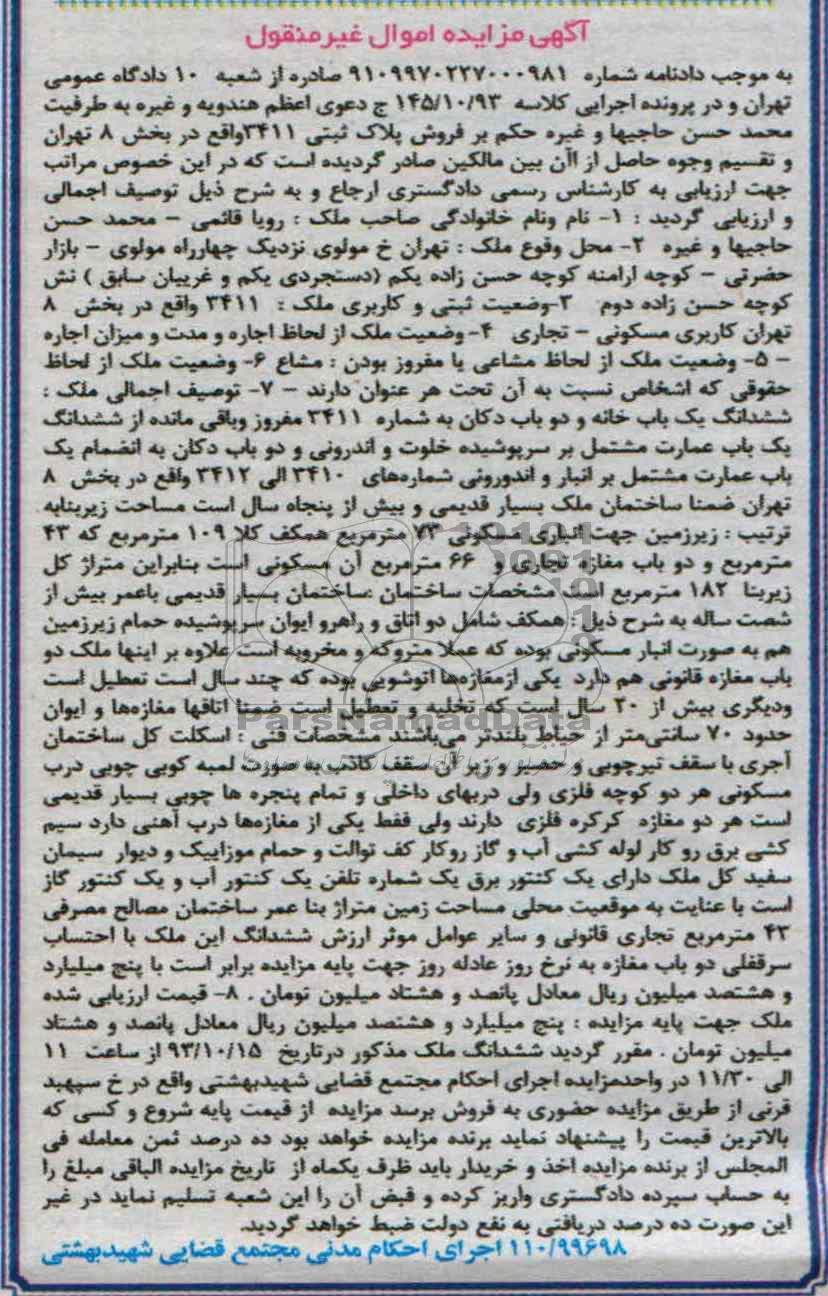 آگهی مزایده اموال غیرمنقول
به موجب دادنامه شماره ۹۱۰۹۹۷۰۲۲۷۰۰۰۹۸۱ صادره از شعبه ۱۰ دادگاه عمومی
تهران و در پرونده اجرایی کلاسه ۱۴۵/۱۰/۹۳ ج دعوی اعظم هندویه و غیره به طرفیت
محمد حسن حاجیها و غیره حکم بر فروش پلاک ثبتی ۳۴۱۱واقع در بخش ۸ تهران
و تقسیم وجوه حاصل از اآن بین مالکین صادر گردیده است که در این خصوص مراتب
جهت ارزیابی به کارشناس رسمی دادگستری ارجاع و به شرح ذیل توصیف اجمالی
و ارزیابی گردید : ۱- نام ونام خانوادگی صاحب ملک : رویا قائمی – محمد حسن
حاجیها و غیره ۲- محل وقوع ملک : تهران خ مولوی نزدیک چهارراه مولوی – بازار
حضرتی – کوچه ارامنه کوچه حسن زاده یکم (دستجردی یکم و غریبان سابق ) نش
کوچه حسن زاده دوم ۳-وضعیت ثبتی و کاربری ملک : ۳۴۱۱ واقع در بخش ۸
تهران کاربری مسکونی – تجاری ۴- وضعیت ملک از لحاظ اجاره و مدت و میزان اجاره
– ۵- وضعیت ملک از لحاظ مشاعی یا مفروز بودن : مشاع ۶- وضعیت ملک از لحاظ
حقوقی که اشخاص نسبت به آن تحت هر عنوان دارند – ۷- توصیف اجمالی ملک :
ششدانگ یک باب خانه و دو باب دکان به شماره ۳۴۱۱ مفروز وباقی مانده از ششدانگ
یک باب عمارت مشتمل بر سرپوشیده خلوت و اندرونی و دو باب دکان به انضمام یک
باب عمارت مشتمل بر انبار و اندورونی شماره‌های ۳۴۱۰ الی ۳۴۱۲ واقع در بخش ۸
تهران ضمنا ساختمان ملک بسیار قدیمی و بیش از پنجاه سال است مساحت زیربنابه
ترتیب : زیرزمین جهت انباری مسکونی ۷۳ مترمربع همکف کلا ۱۰۹ مترمربع که ۴۳
مترمربع و دو باب مغازه تجاری و ۶۶ مترمربع آن مسکونی است بنابراین متراژ کل
زیربنا ۱۸۲ مترمربع است مشخصات ساختمان :ساختمان بسیار قدیمی باعمر بیش از
شصت ساله به شرح ذیل : همکف شامل دو اتاق و راهرو ایوان سرپوشیده حمام زیرزمین
هم به صورت انبار مسکونی بوده که عملا متروکه و مخروبه است علاوه بر اینها ملک دو
باب مغازه قانونی هم دارد یکی ازمغازه‌ها اتوشویی بوده که چند سال است تعطیل است
ودیگری بیش از ۲۰ سال است که تخلیه و تعطیل است ضمنا اتاقها مغازه‌ها و ایوان
حدود ۷۰ سانتی‌متر از حیاط بلندتر می‌باشند مشخصات فنی : اسکلت کل ساختمان
آجری با سقف تیرچوبی و حصیر و زیر آن سقف کاذب به صورت لمبه کوبی چوبی درب
مسکونی هر دو کوچه فلزی ولی دربهای داخلی و تمام پنجره ها چوبی بسیار قدیمی
است هر دو مغازه کرکره فلزی دارند ولی فقط یکی از مغازه‌ها درب آهنی دارد سیم
کشی برق رو کار لوله کشی آب و گاز روکار کف توالت و حمام موزاییک و دیوار سیمان
سفید کل ملک دارای یک کنتور برق یک شماره تلفن یک کنتور آب و یک کنتور گاز
است با عنایت به موقعیت محلی مساحت زمین متراژ بنا عمر ساختمان مصالح مصرفی
۴۳ مترمربع تجاری قانونی و سایر عوامل موثر ارزش ششدانگ این ملک با احتساب
سرقفلی دو باب مغازه به نرخ روز عادله روز جهت پایه مزایده برابر است با پنج میلیارد
و هشتصد میلیون ریال معادل پانصد و هشتاد میلیون تومان . ۸- قیمت ارزیابی شده
ملک جهت پایه مزایده : پنج میلیارد و هشتصد میلیون ریال معادل پانصد و هشتاد
میلیون تومان . مقرر گردید ششدانگ ملک مذکور درتاریخ ۹۳/۱۰/۱۵ از ساعت ۱۱
الی ۱۱/۳۰ در واحدمزایده اجرای احکام مجتمع قضایی شهیدبهشتی واقع در خ سپهبد
قرنی از طریق مزایده حضوری به فروش برسد مزایده از قیمت پایه شروع و کسی که
بالاترین قیمت را پیشنهاد نماید برنده مزایده خواهد بود ده درصد ثمن معامله فی
المجلس از برنده مزایده اخذ و خریدار باید ظرف یکماه از تاریخ مزایده الباقی مبلغ را
به حساب سپرده دادگستری واریز کرده و قبض آن را این شعبه تسلیم نماید در غیر
این صورت ده درصد دریافتی به نفع دولت ضبط خواهد گردید.
۱۱۰/۹۹۶۹۸ اجرای احکام مدنی مجتمع قضایی شهیدبهشتی
ParsNamadData